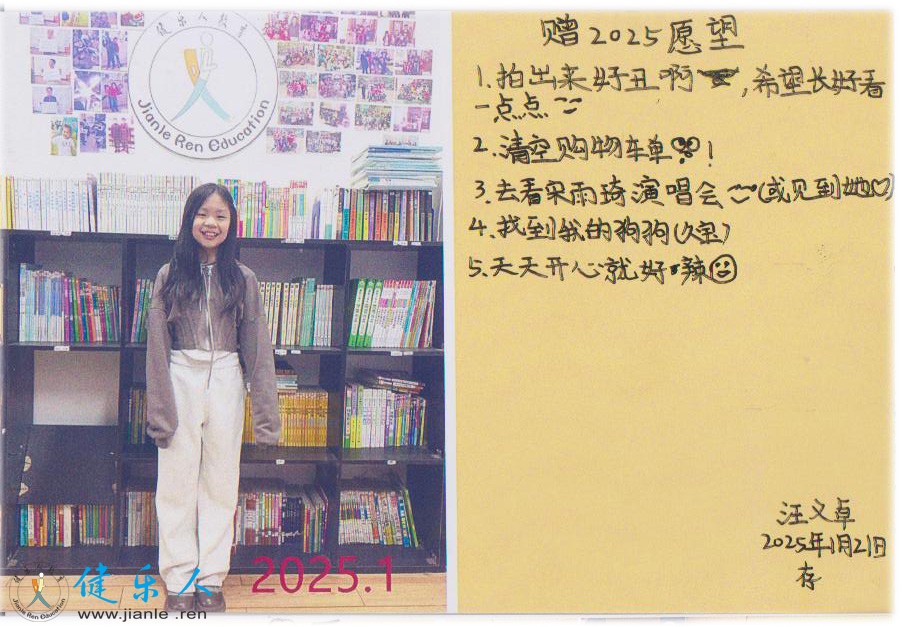 健乐人教育
Jianle Ren Education
2025.1
健乐人
www.jianle.ren
赠2025愿望
1.拍出来好丑啊,希望长好看
一点点
2.清空购物车单!
3.去看宋雨琦演唱会~(或见到她♡)
4.找到我的狗狗()
5.天天开心就好辣☺
汪文卓
2025年1月21日
存